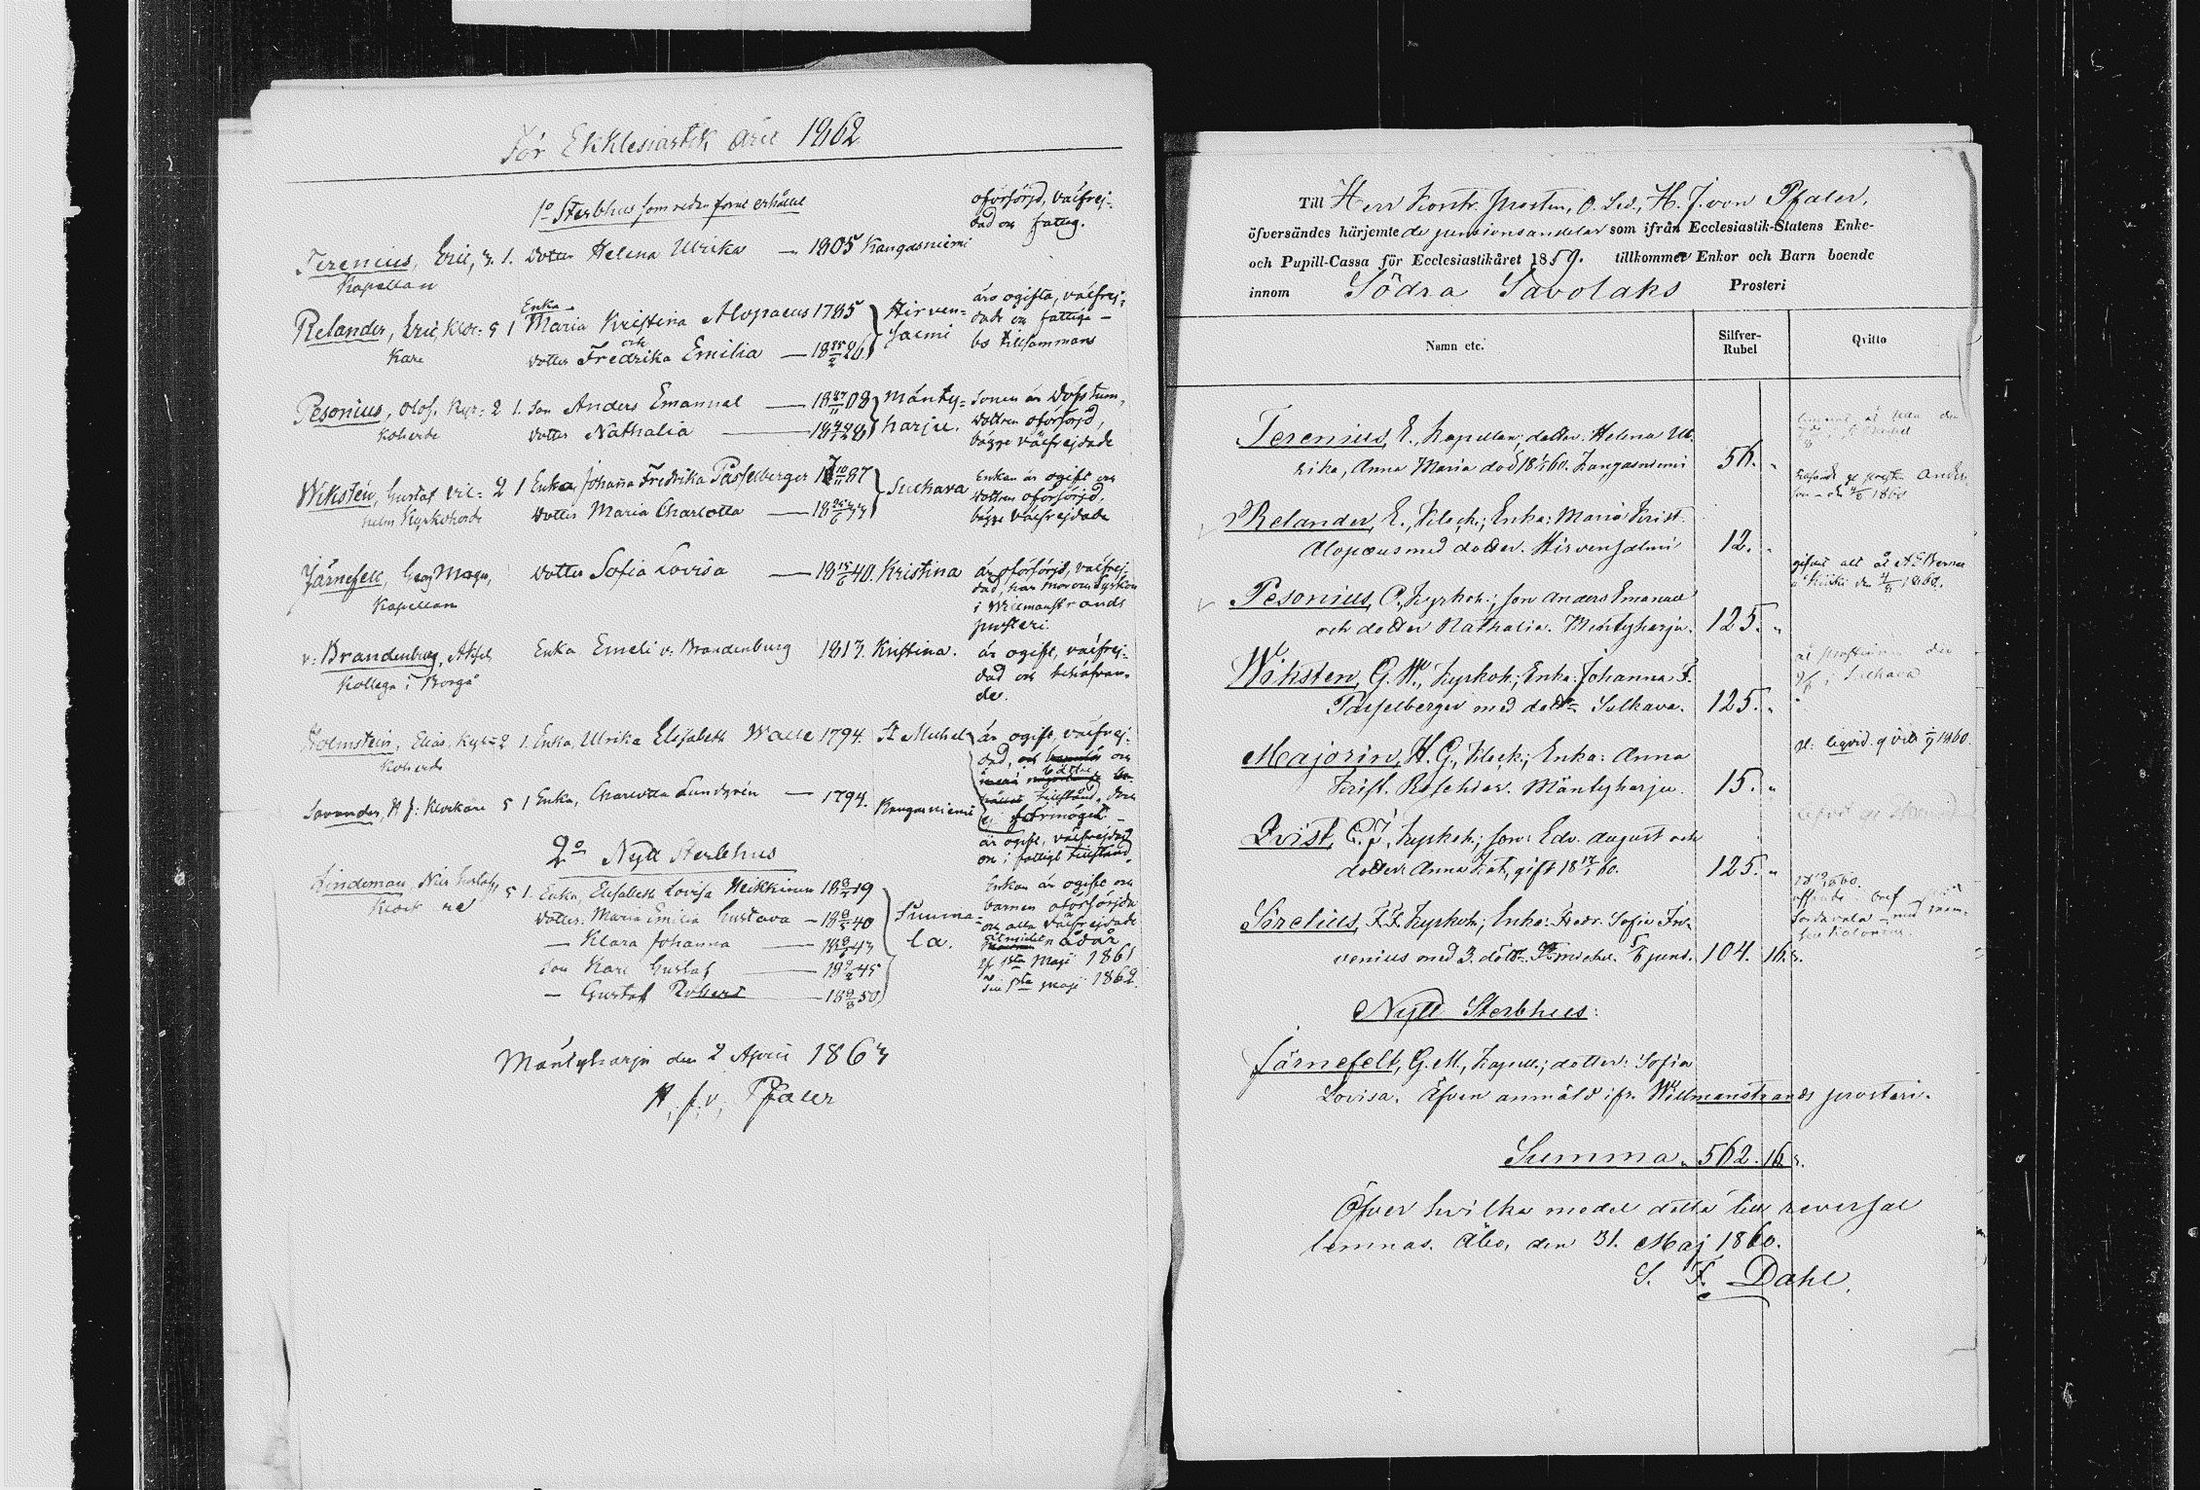 För Ekklesiastik året 1862
1o Sterbhus som redan förut erhållit
Terenius, Eric, 3. 1. Dotter Helena Ulrika — 1805 Kangasniemi
Kapellan
oförsörjd, välfrej-
dad och fattig.
Relander, Eric, Kloc- 5 1 Enka Maria Kristina Alopaeus 1785
kare
och
dotter Fredrika Emilia — 18 26
Hirven-
salmi
äro ogifta, välfrej-
dade och fattiga —
bo tillsammans
Pesonius, Olof, Kyr- 2 1. Son Anders Emanuel — 18 27/11 08
koherde
dotter Nathalia — 18 28
Mänty-
harju.
Sonen är döfstum,
dottren oförsörjd,
bägge välfrejdade
Wiksten, Gustaf Vil- 2 1 Enka Johanna Fredrika Passelberger 1 10/11 87
helm Kyrkoherde
Dotter Maria Charlotta — 18 33
Sulkava
Enkan är ogift och
dottren oförsörjd,
bägge välfrejdade
Järnefelt, Georg Magn,
Kapellan
Dotter Sofia Lovisa — 18 15/6 40. Kristina
är oförsörjd, välfrej-
dad, har moren syskon
i Wilmanstrands
prosteri.
v. Brandenburg, Aksel
Kollega i Borgå
Enka Emeli v. Brandenburg 1813. Kristina.
är ogift, välfrej-
dad och behöfvan-
de.
Holmstein, Elias, Kyr- 2 1. Enka, Ulrika Elisabeth Walle 1794. St Michel
koherde
är ogift, välfrej-
dad, och
Savander, H J: Klockare 5 1 Enka, Charlotta Lundgrén — 1794. Kangasniemi
förmögen —
är ogift, välfrejdad
och i fattigt tillstånd.
2o Nytt Sterbhus
Lindeman, Nils Gustaf, 5 1. Enka, Elisabeth Lovisa Heikkinen 18 19
Klockare
Dotter. Maria Emilia Gustava — 18 40
— Klara Johanna — 18 43
Son Karl Gustaf — 18 45
— Gustaf Robert — 18 50
Summa-
la.
Enkan är ogift och
barnen oförsörjda
och alla välfrejdade
nådår
1sta Maji 1861
1sta Maji 1862.
Mäntyharju den 2 April 1863
H. J. v. Pfaler
Till Herr Kontr. Prosten, O. Led., H. J. von Pfaler,
öfversändes härjemte de pensionsandelar som ifrån Ecclesiastik-Statens Enke-
och Pupill-Cassa för Ecclesiastikåret 1859. tillkommer Enkor och Barn boende
innom Södra Savolaks Prosteri
Namn etc. Silfver-Rubel Qvitto
Terenius, E., Kapellan; dotter: Helena Ul-
rika, Anna Maria död 18 60. Kangasniemi 56. "
Relander, E., Klock.; Enka: Maria Krist.
Alopaeus med dotter. Hirvensalmi 12. "
Pesonius, O., Kyrkoh.; son Anders Emanuel
och dotter Nathalia. Mäntyharju. 125. "
Wiksten, G. W., Kyrkoh.; Enka: Johanna F.
Passelberger med dottr. Sulkava. 125. "
Majorin, H. G., Klock.; Enka: Anna
Krist. Roschier. Mäntyharju. 15. "
Qvist, C. J., Kyrkoh.; son: Edv. August och
dotter Anna Kat., gift 18 60. 125. "
Sirelius, F. F. Kyrkoh.; Enka: Fredr. Sofia In-
venius med 3. döttr. St michel. 104. 16.
Nytt Sterbhus:
Järnefelt, G. M., Kapell.; dotter: Sofia
Lovisa. Äfven anmäld ifr. Willmanstrands prosteri.
Summa. 562. 16.
Öfver hvilka medel detta till reversal
lemnas. Åbo, den 31. Maj 1860.
S. F. Dahl.